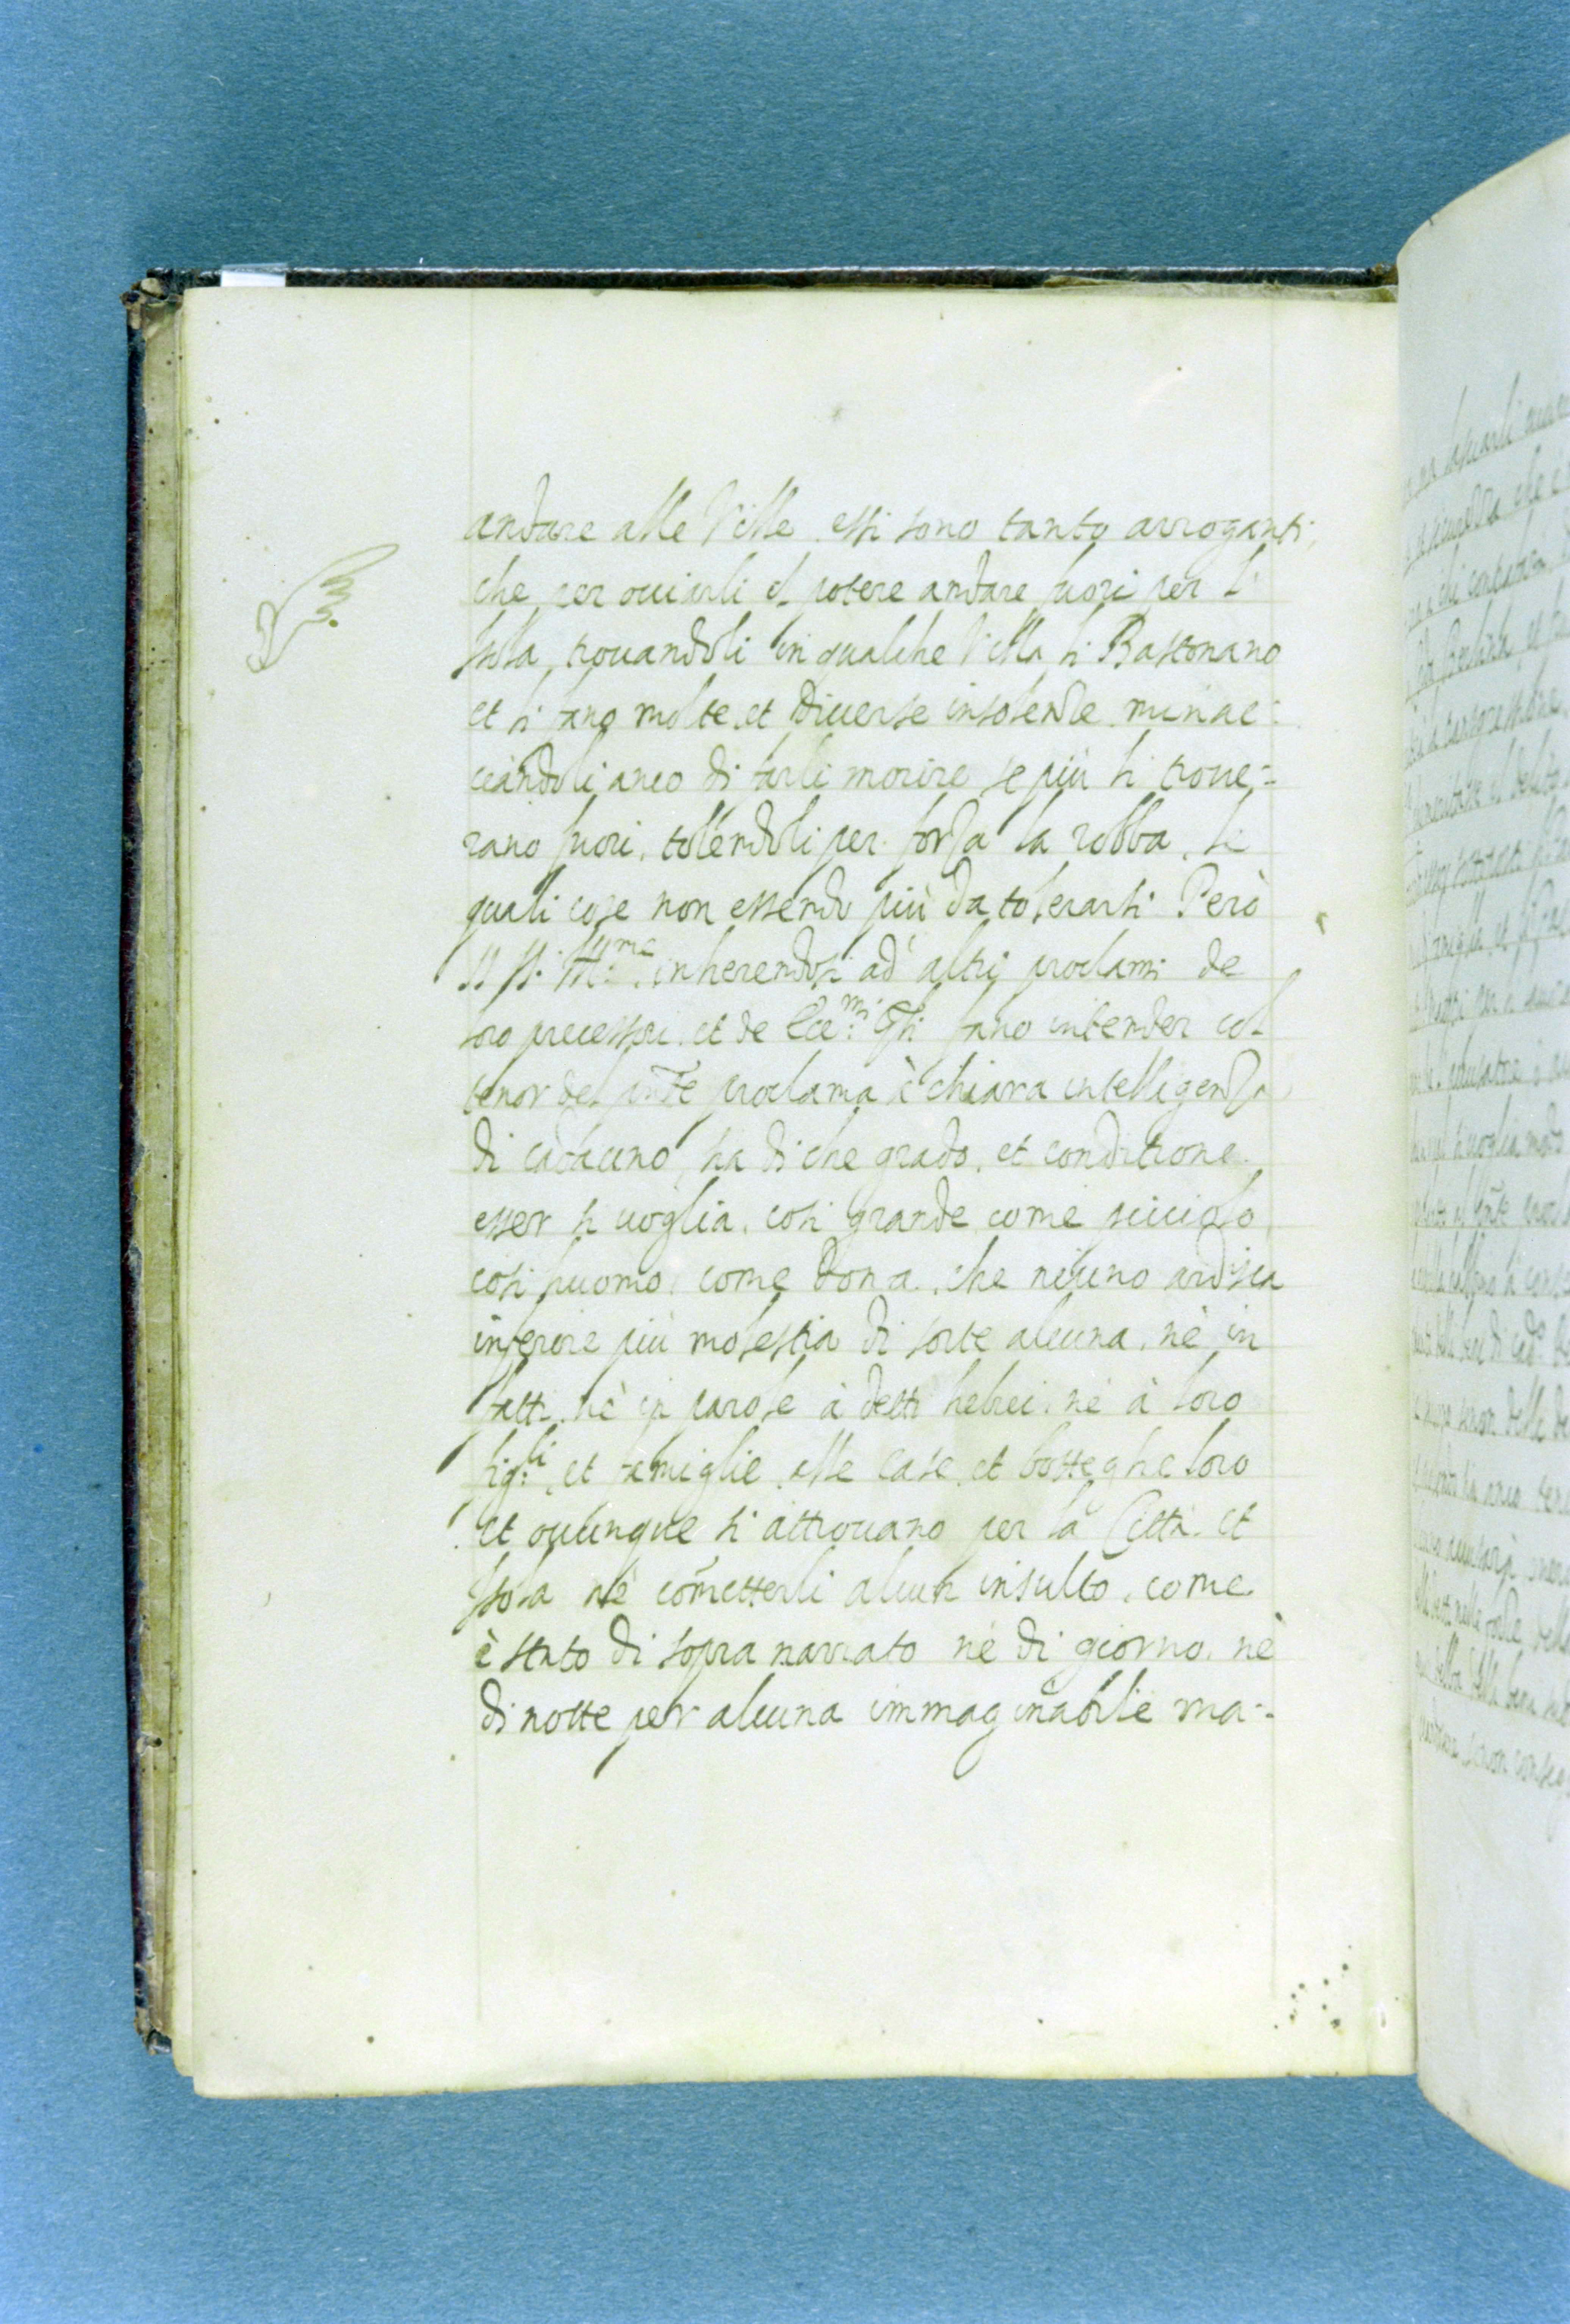 andare alle Ville essi sono tanto arroganti,
che per ouiarli il potere andare fuori per l'
Isola, trouandoli in qualche Villa li Bastonano
et li fano molte, et diuerse insolenze minac:
ciandoli anco di farli morire se più li troue:
rano fuori, tollendoli per forza la robba, le
quali cose non essendo più da tolerarsi. Però
SS. SS. Ill.me inherendosi ad altri proclami de
loro precessori, et de Ecc.mi fano intender col
tenor del pñte proclama à chiara intelligenza
di cadauno, sia di che grado, et conditione
esser si uoglia, così grande, come picciolo
così huomo, come dona, che niuno ardisca
inferire più molestia di sorte alcuna, nè in
fatti, nè in parole à detti hebrei, nè à loro
fig:li et famiglie, alle case, et botteghe loro
et ouunque si attrouano per la Città, et
Isola nè cõmetterli alcun insulto, come
è stato di sopra narrato nè di giorno, nè
di notte per alcuna immaginabile ma: